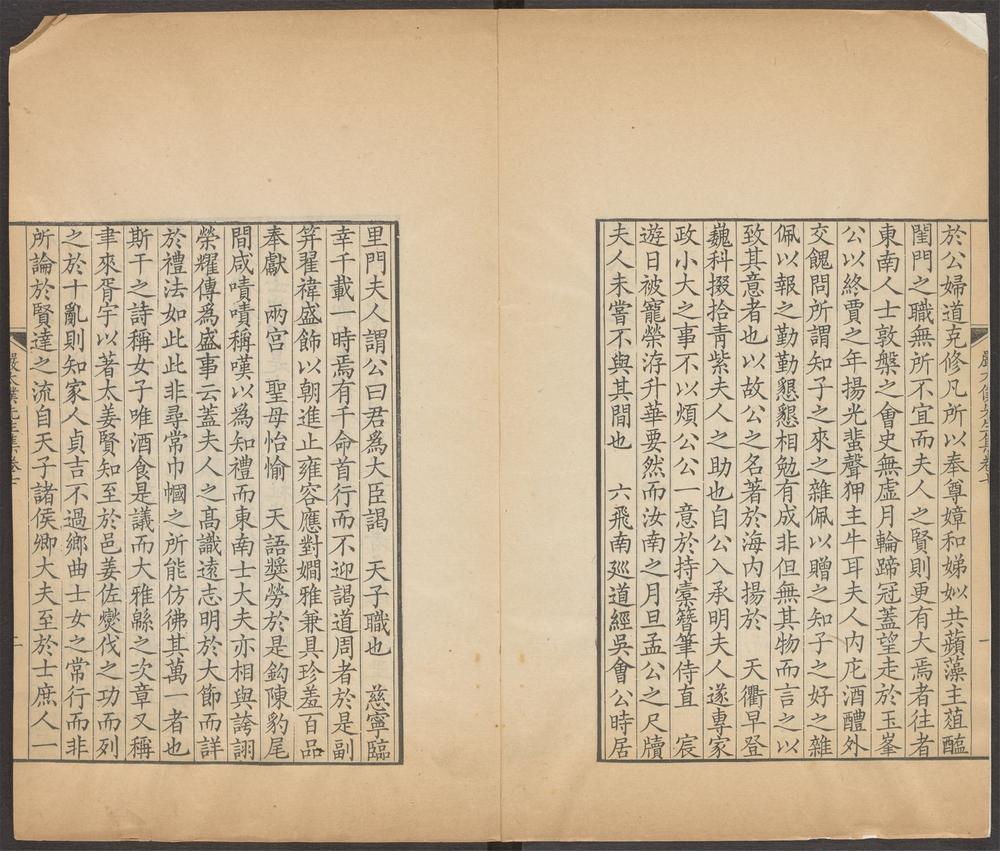 於公婦道克修凡所以奉尊嫜和娣姒共蘋藻主葅醢
閨門之職無所不宜而夫人之賢則更有大焉者往者
東南人士敦槃之會史無虛月輪蹄冠蓋望走於玉峯
公以終賈之年揚光蜚聲狎主牛耳夫人內庀酒醴外
交餽問所謂知子之來之雜佩以贈之知子之好之雜
佩以報之勤勤懇懇相勉有成非但無其物而言之以
致其意者也以故公之名著於海內揚於　天衢早登
巍科掇拾青紫夫人之助也自公入承明夫人遂專家
政小大之事不以煩公公一意於持橐簪筆侍直　宸
遊日被寵榮洊升華要然而汝南之月旦孟公之尺牘
夫人未嘗不與其間也　六飛南廵道經吳會公時居
里門夫人謂公曰君為大臣謁　天子職也　慈寧臨
幸千載一時焉有千命首行而不迎謁道周者於是副
笄翟褘盛飾以朝進止雍容應對嫺雅兼具珍羞百品
奉獻　兩宮　聖母怡愉　天語獎勞於是鈎陳豹尾
間咸嘖嘖稱嘆以為知禮而東南士大夫亦相與誇詡
榮耀傳為盛事云蓋夫人之高識遠志明於大節而詳
於禮法如此此非尋常巾幗之所能仿彿其萬一者也
斯干之詩稱女子唯酒食是議而大雅緜之次章又稱
聿來胥宇以著太姜賢知至於邑姜佐爕伐之功而列
之於十亂則知家人貞吉不過鄉曲士女之常行而非
所論於賢達之流自天子諸侯卿大夫至於士庶人一